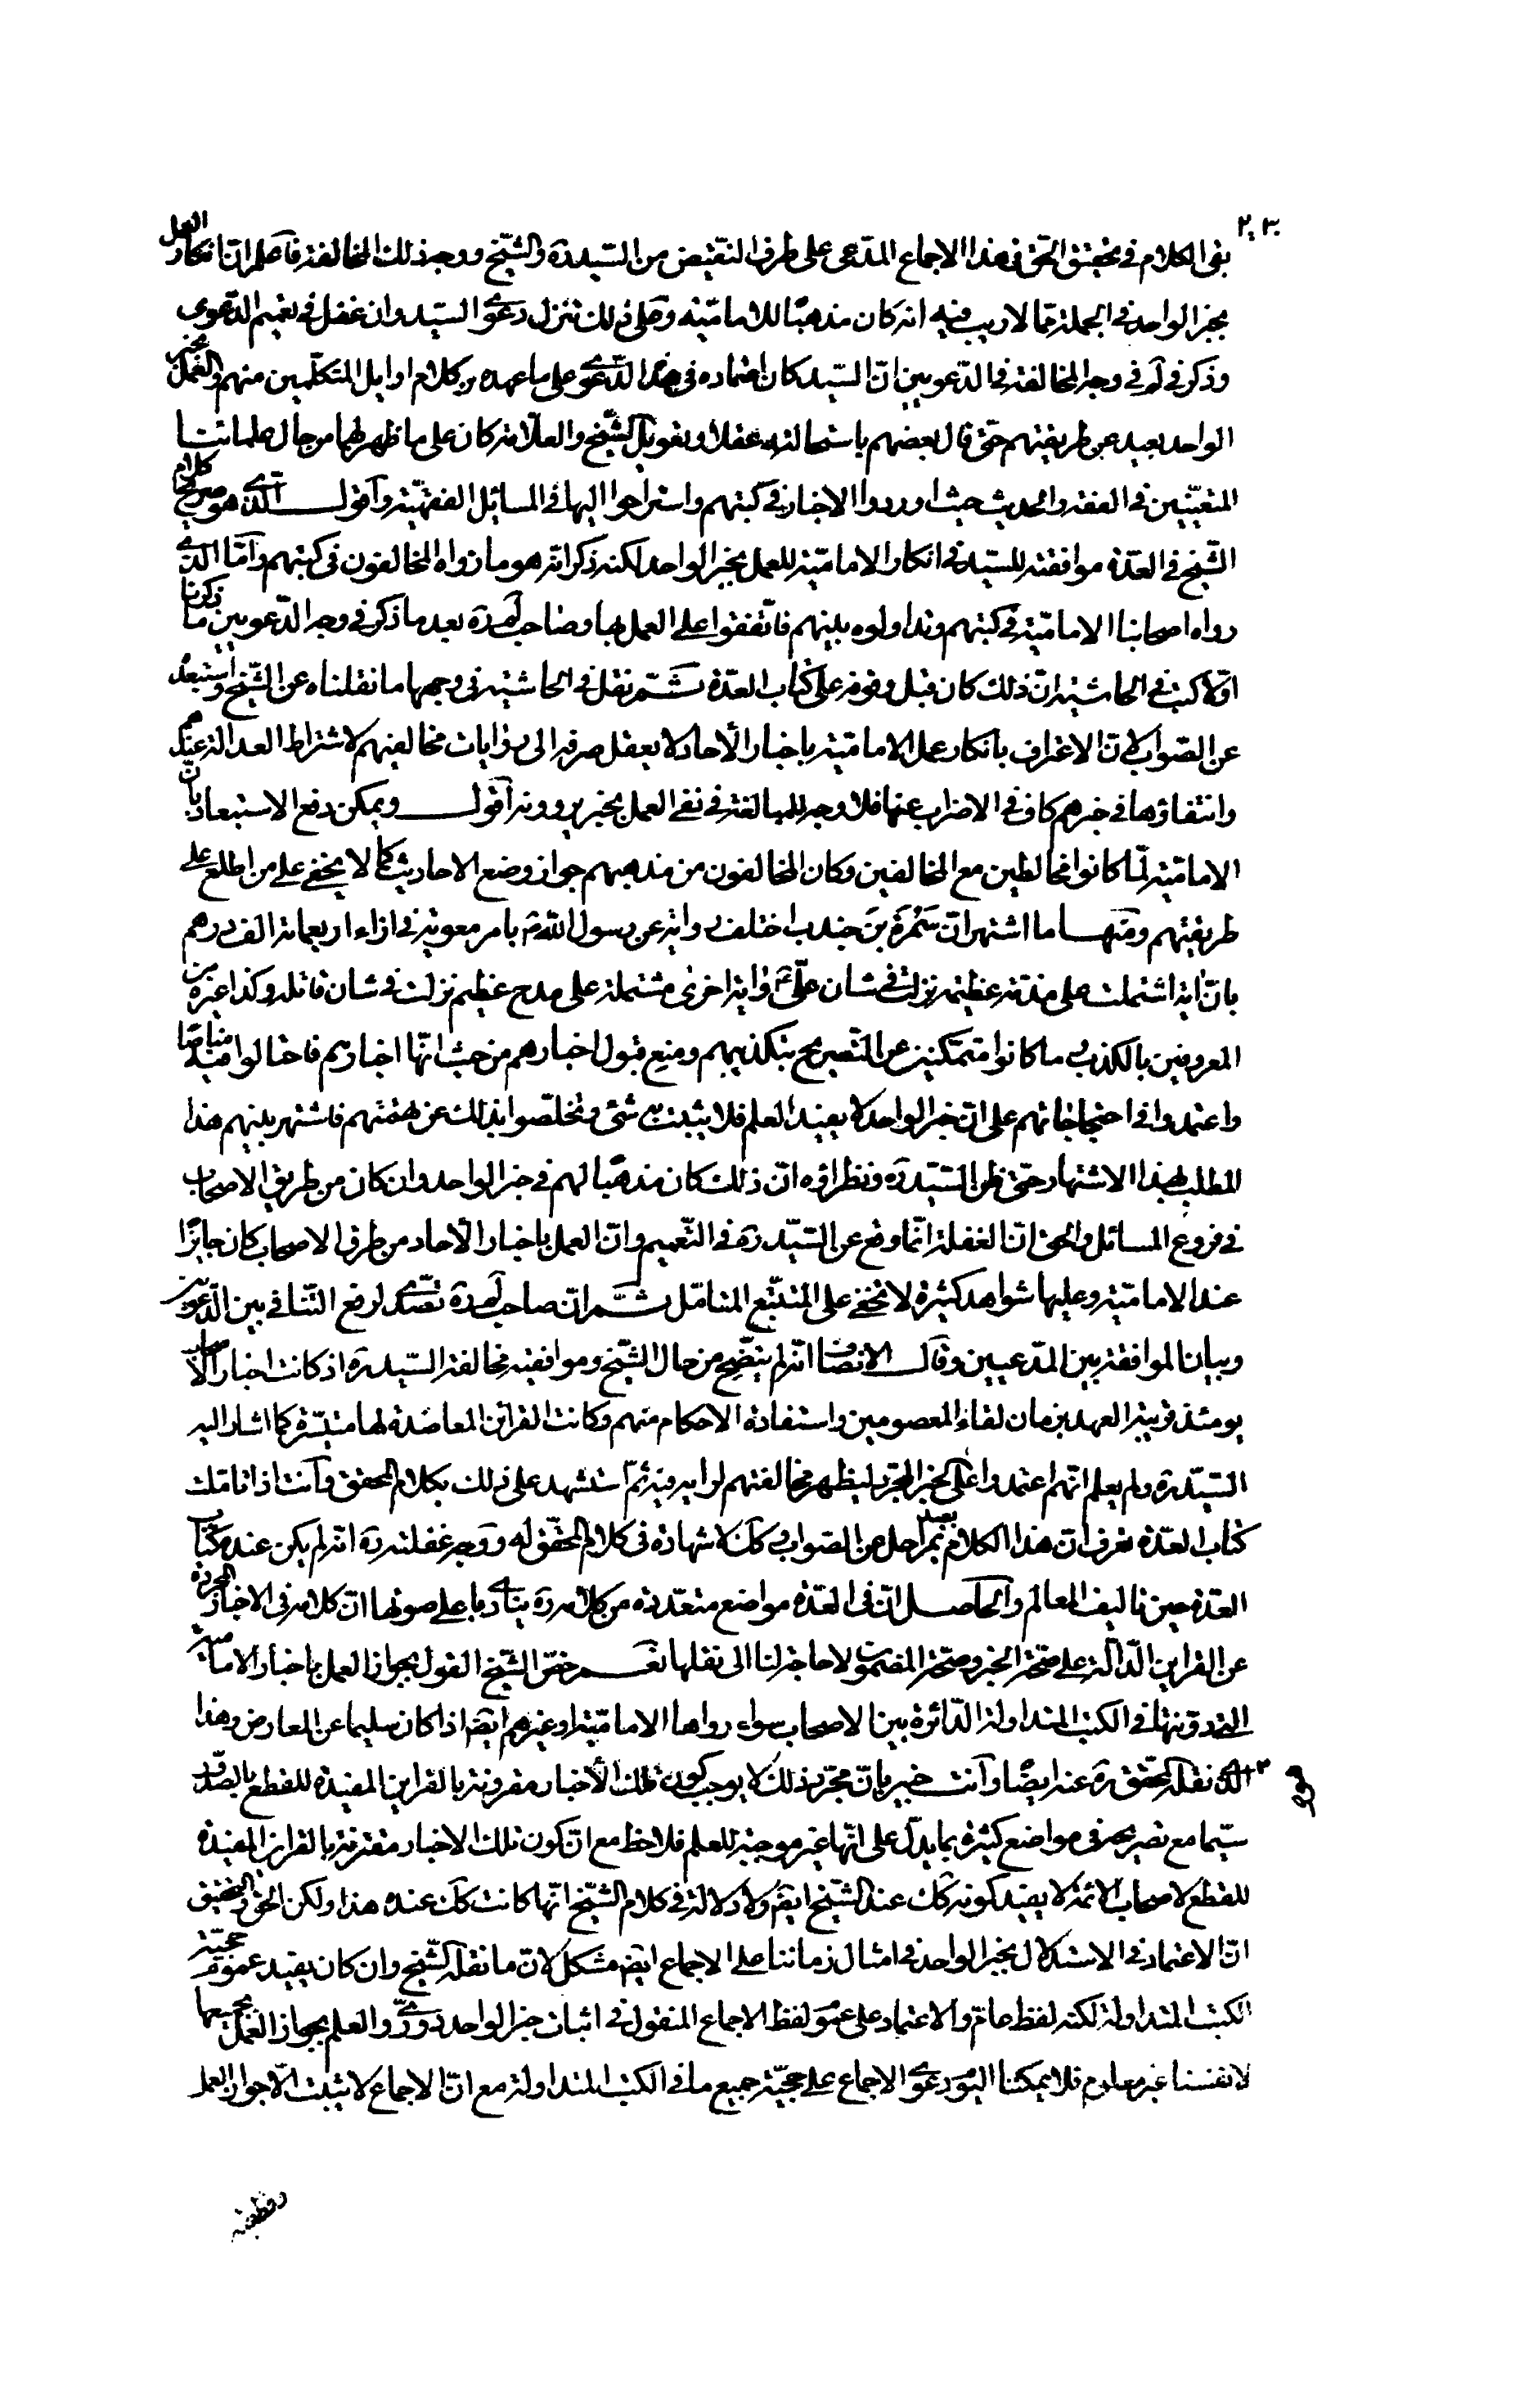 ٢٠٣
بقى الكلام فى تحقيق الحق فى هذا الاجماع المدّعى على طرفى النقيض من السّيد ره والشّيخ ووجه ذلك المخالفة فاعلم ان انكار العمل
بخبر الواحد فى الجملة ممّا لا ريب فيه انه كان مذهبًا للاماميّة وعلى ذلك تنزل دعوى السيّد وان غفل فى تعميم الدّعوى
وذكر فى لم فى وجه المخالفة فى الدّعويين انّ السيّد كان اعتماده فى هذه الدّعوى على ما عهده من كلام اوايل المتكلّمين منهم والعمل بخبر
الواحد بعيد عن طريقتهم حتى قال بعضهم باستحالته عقلا وتعويل الشّيخ والعلّامة كان على ما ظهر لهما من حال علمائنا
المتعيّنين فى الفقه والحديث حيث اوردوا الاخبار فى كتبهم واستراحوا اليها فى المسايل الفقهيّة واقول الّذى هو صريح كلام
الشّيخ فى العدّة موافقته للسيّد فى انكار الاماميّة للعمل بخبر الواحد لكنه ذكر انه هو ما رواه المخالفون فى كتبهم وامّا الّذى
رواه اصحابنا الاماميّة فى كتبهم وتداولوه بينهم فاتّفقوا على العمل بها وصاحب لم ره بعد ما ذكر فى وجه الدّعويين ما ذكرنا
اوّلا كتب فى الحاشية انّ ذلك كان قبل وقوفه على كتاب العدّة ثمّ نقل فى الحاشية فى وجهها ما نقلناه عن الشّيخ واستبعده
عن الصّواب لانّ الاعتراف بانكار عمل الاماميّة باخبار الآحاد لا يعقل صرفه الى روايات مخالفيهم لاشتراط العدالة عندهم
وانتفاؤها فى خبرهم كاف فى الاضراب عنها فلا وجه للمبالغة فى نفى العمل بخبر يروونه اقول ويمكن دفع الاستبعاد بانّ
الاماميّة لمّا كانوا مخالطين مع المخالفين وكان المخالفون من مذهبهم جواز وضع الاحاديث كما لا يخفى على من اطلع على
طريقتهم ومنها ما اشتهر انّ سَمُرَة بن جندب اختلف رواية عن رسول اللّه ص بامر معوية فى ازاء اربعمائة الف درهم
بانّ اية اشتملت على مذمّة عظيمة نزلت فى شان علىّ ع واية اخرى مشتملة على مدح عظيم نزلت فى شان قاتله وكذا غيره من
المعروفين بالكذب ما كانوا متمكنين عن التّصريح بتكذيبهم ومنع قبول اخبارهم من حيث انّها اخبارهم فاحتالوا مناصا منه
واعتمدوا فى احتجاجاتهم على انّ خبر الواحد لا يفيد العلم فلا يثبت به شئ وتخلّصوا بذلك عن تهمتهم فاشتهر بينهم هذا
المطلب بهذا الاشتهار حتى ظن السّيّد ره ونظراؤه انّ ذلك كان مذهبا لهم فى خبر الواحد وان كان من طريق الاصحاب
فى فروع المسائل والحق انّ الغفلة انّما وقع عن السّيّد ره فى التّعميم وانّ العمل باخبار الآحاد من طرق الاصحاب كان جايزًا
عند الاماميّة وعليها شواهد كثيرة لا تخفى على المتتبّع المتامّل ثمّ انّ صاحب لم ره تصدّى لرفع التّنافى بين الدّعويين
وبيان الموافقة بين المدّعيين وقال الانصاف انّه لم يتّضح من حال الشّيخ وموافقيه مخالفة السّيد ره اذ كانت اخبار الاصحاب
يومئذ قريبة العهد بزمان لقاء المعصومين واستفادة الاحكام منهم وكانت القراين المعاضدة لها متيسّرة كما اشار اليه
السّيّد ره ولم يعلم انّهم اعتمدوا على الخبر المجرّد ليظهر مخالفتهم لرايه فيه ثمّ استشهد على ذلك بكلام المحقق وانت اذا تاملت
كتاب العدّة تعرف انّ هذا الكلام بعيد بمراحل عن الصّواب وكك لا شهادة فى كلام المحقّق له ووجه غفلته ره انّه لم يكن عنده كتاب
العدّة حين تاليف المعالم والحاصل انّ فى العدّة مواضع متعدّدة من كلامه ره ينادى باعلى صوتها انّ كلامه فى الاخبار المجردة
عن القراين الدّالة على صحّة الخبر وصحّة المضمون ولا حاجة لنا الى نقلها نعم خصّ الشّيخ القول بجواز العمل باخبار الاماميّة
المدوّنة فى الكتب المتداولة الدّائرة بين الاصحاب سواء رواها الاماميّة او غيرهم ايضا اذا كان سليما عن المعارض وهذا
الّذى نقله المحقّق ره عنه ايضًا وانت خبير بانّ مجرّد ذلك لا يوجب كون تلك الأخبار مقرونة بالقراين المفيدة للقطع بالصّدور
سيّما مع تصريحه فى مواضع كثيرة بما يدلّ على انّها غير موجبة للعلم فلاحظ مع انّ كون تلك الاخبار مقترنة بالقراين المفيدة
للقطع لاصحاب الائمّة لا يفيد كونه كك عند الشّيخ ايضا ولا دلالة فى كلام الشّيخ انّها كانت كك عنده هذا ولكن الحق والتحقيق
انّ الاعتماد فى الاستدلال بخبر الواحد فى امثال زماننا على الاجماع ايضا مشكل لانّ ما نقله الشّيخ وان كان يفيد عموم حجيّة
الكتب المتداولة لكنه لفظ عامّ والاعتماد على عموم لفظ الاجماع المنقول فى اثبات خبر الواحد دورىّ والعلم بجواز العمل بجميعها
لانفسنا غير معلوم فلا يمكننا اليوم دعوى الاجماع على حجيّة جميع ما فى الكتب المتداولة مع انّ الاجماع لا يثبت الّا جواز العمل